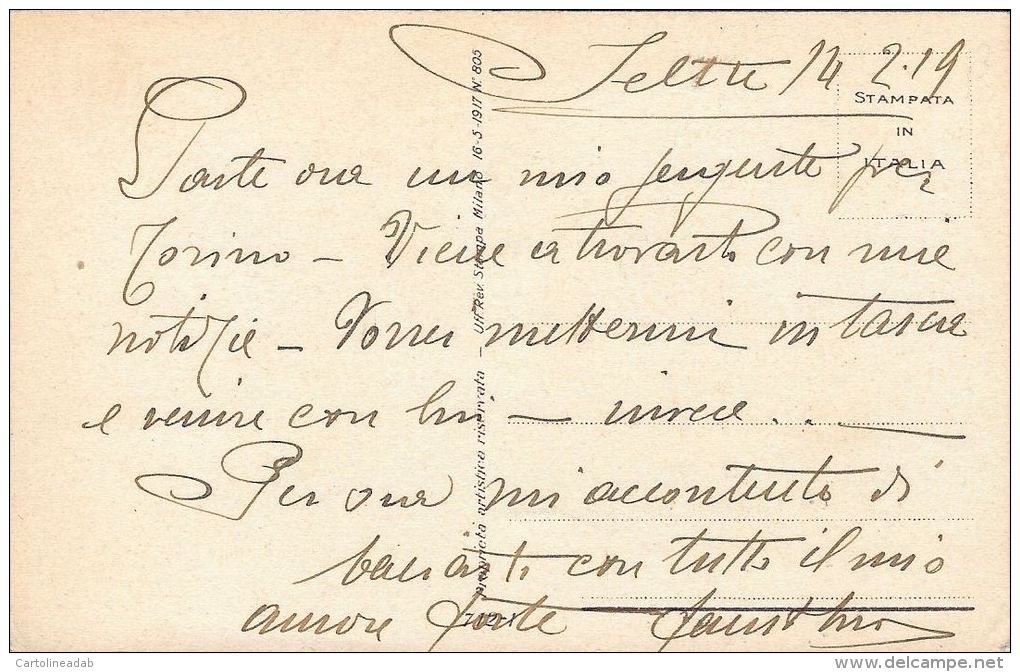 Feltre 14 2.19
STAMPATA
IN
ITALIA
Parte ora un mio sergente per
Torino – Viene a trovarti con mie
notizie – Vorrei mettermi in tasca
e venire con lui – invece...
Per ora mi accontento di
baciarti con tutto il mio
amore forte
Proprietà artistica riservata – Uff. Rev. Stampa Milano 16-5-1917 N° 805
Cartolineadab
delcampe.net